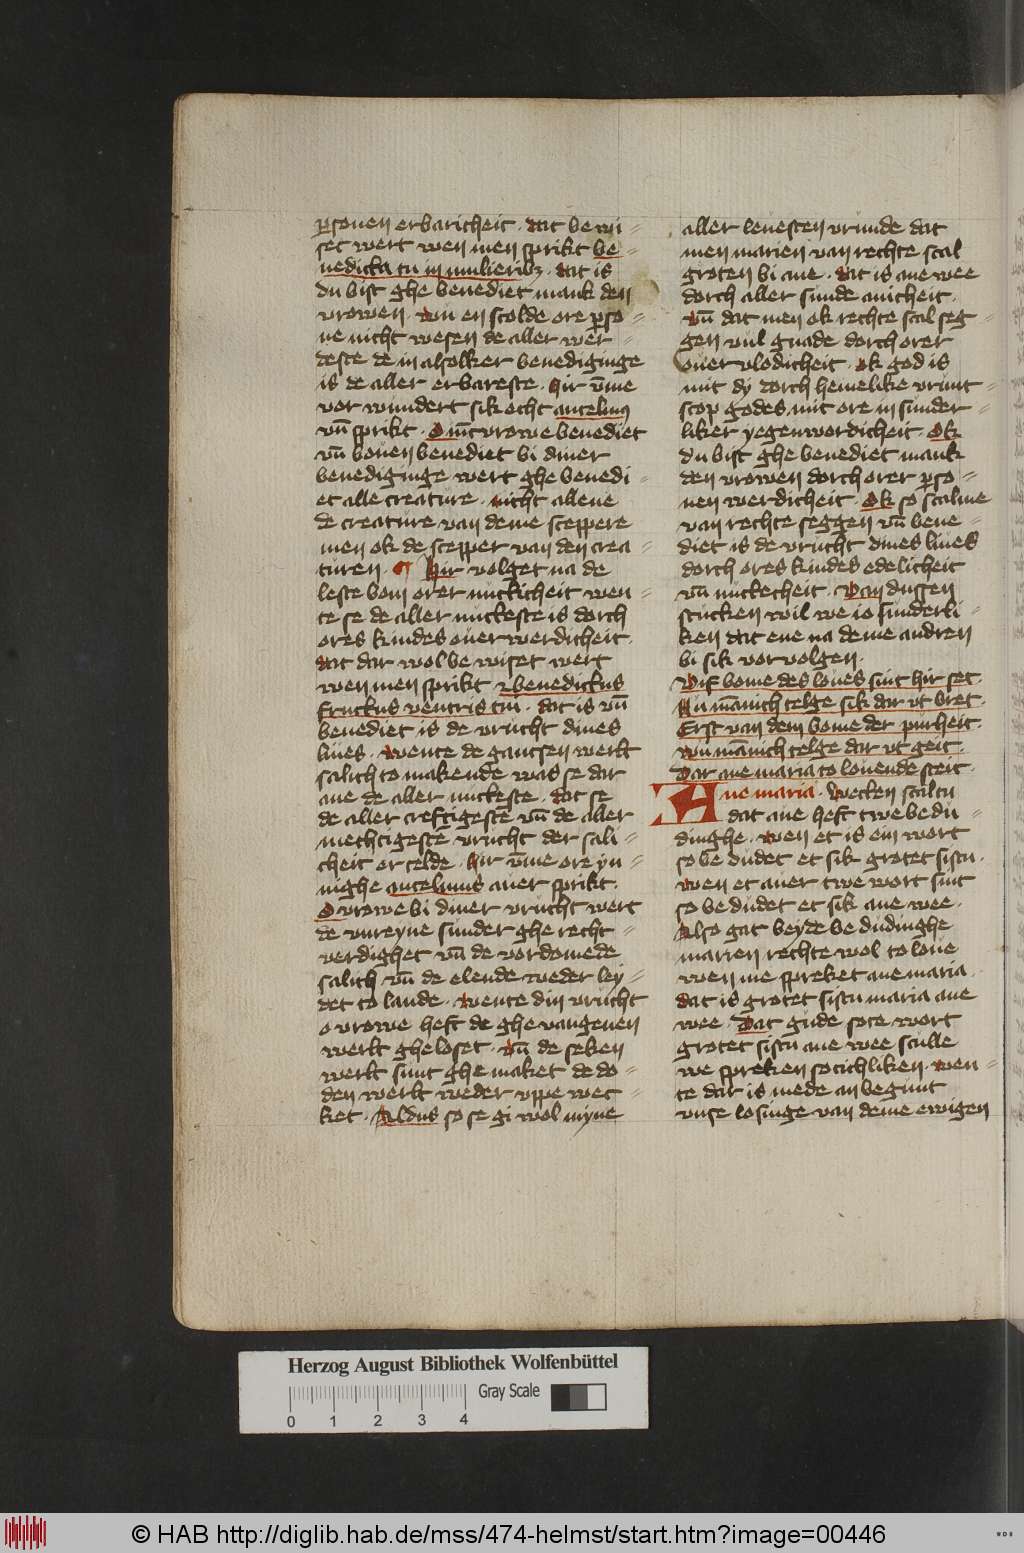 personen erbaricheit. dat be wi=
set wert wen men sprikt be=
nedicta tu in mulieribus. dat is
du bist ghe benediet mank den
vrowen. wu en scolde ore perso=
ne nicht wesen de aller wer=
deste de in alsolker benediginge
is de aller erbareste. hir vm̄e
vor wundert sik echt ancelmus
vn̄ sprikt. O mīt vrowe benediet
vn̄ bouen benediet bi diner
benediginge wert ghe benedi=
et alle creature. nicht allene
de creature van deme sceppere
men ok de scepper van den crea=
turen. ¶ Hir volget na de
leste bom orer nutticheit wen=
te se de aller nutteste is dorch
ores kindes ouer werdicheit.
dat dar wol be wiset wert
wen men sprikt et benedictus
fructus ventris tui. dat is vn̄
benediet is de vrucht dines
liues. wente de gantsen werlt
salich to makende was se dar
aue de aller nutteste. dat se
de aller creftigeste vn̄ de aller
mechtigeste vrucht der sali=
cheit or telde. hir vm̄e ore yn=
nighe ancelmus auer sprikt.
O vrowe bi diner vrucht wert
de vnreyne sunder ghe recht=
verdighet vn̄ de vordomede
salich vn̄ de elende weder ley=
det to lande. wente din vrucht
o vrowe heft de ghe vangenen
werlt ghe loset. vn̄ de seken
werlt sunt ghe maket de do=
den werlt weder vppe wec=
ket. Aldus so se gi wol myne
aller leuesten vrunde dat
men marien van rechte scal
groten bi aue. dat is ane wee
dorch aller sunde anicheit.
vn̄ dat men ok rechte scal seg=
gen vul gnade dorch orer
ouer vlodicheit. ok god is
mit dy dorch hemelike vrunt=
scop godes mit ore in sunder=
liker yegenwordicheit. Ok
du bist ghe benediet mank
den vrowen dorch orer perso=
nen werdicheit. Ok so scalme
van rechte seggen vn̄ bene=
diet is de vrucht dines liues
dorch ores kindes edelicheit
vn̄ nuttecheit. Van dussen
stucken wil we io sunderli=
ken dat ene na deme andren
bi sik vor volgen.
Vif bome des loues sint hir set.
Nu mānich telge sik dar vt bret.
Erst van dem bome der purheit.
wu mānich telge dar vt geit.
Dar aue maria to louende steit.
Aue maria. Wecken scaltu
dat aue heft twe be du=
dinghe. wen et is ein wort
so be dudet et sik grotet sistu.
wen et auer twe wort sint
so be dudet et sik ane wee.
Also gat beyde be dudinghe
marien rechte wol to loue
wen me spreket aue maria.
dat is grotet sistu maria ane
wee. Dat gude sote wort
grotet sistu ane wee sculle
we spreken so tichliken. wen=
te dar is mede an begunt
vnse losinge van deme ewigen
Herzog August Bibliothek Wolfenbüttel
Gray Scale
0 1 2 3 4
© HAB http://diglib.hab.de/mss/474-helmst/start.htm?image=00446
WDB